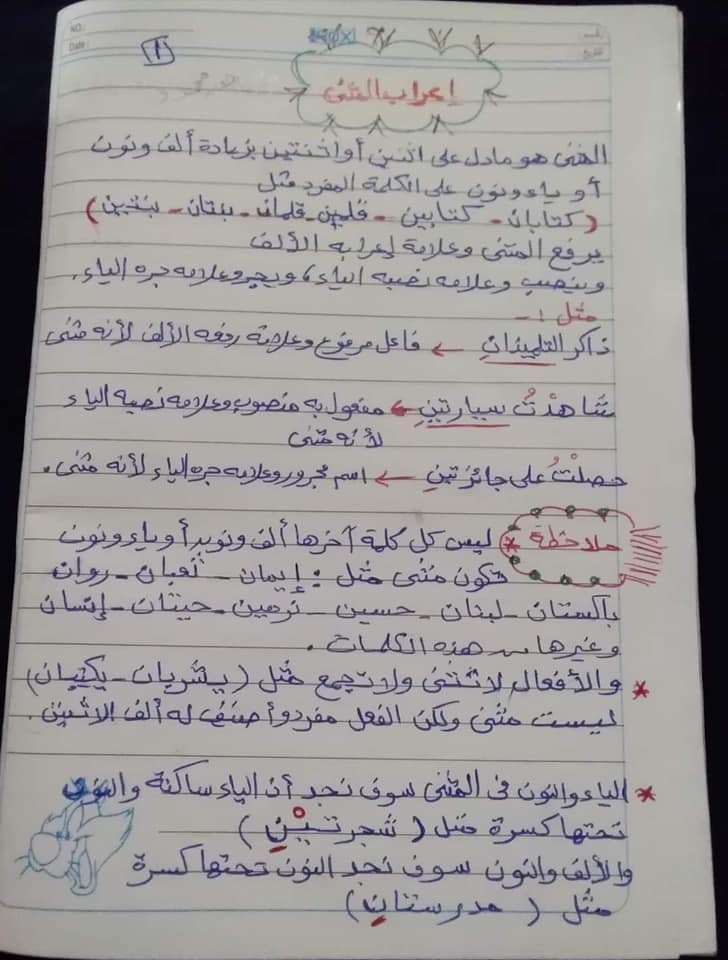 NO:
Date:
١
إعراب المثنى
المثنى هو مادل على اثنين أو اثنتين بزيادة ألف ونون
أو ياء ونون على الكلمة المفرد مثل
(كتابان - كتابين - قلمين - قلمان - بنتان - بنتين)
يرفع المثنى وعلامة إعرابه الألف
وينصب وعلامه نصبه الياء، ويجر وعلامه جره الياء.
مثل :-
ذاكر التلميذانِ ← فاعل مرفوع وعلامة رفعه الألف لأنه مثنى
شَاهدْتُ سيارتينِ ← مفعول به منصوب وعلامه نصبه الياء
لأنه مثنى
حصلْتُ على جائزتينِ ← اسم مجرور وعلامه جره الياء لأنه مثنى.
ملاحظة * ليس كل كلمة آخرها ألف ونون أو ياء ونون
تكون مثنى مثل : إيمان - ثعبان - روان
باكستان - لبنان - حسين - نرمين - حيتان - إنسان
وغيرها من هذه الكلمات.
* والأفعال لا تثنى ولا تجمع مثل (يشربان - يكتبان)
ليست مثنى ولكن الفعل مفرد وأضيف له ألف الاثنين.
* الياء والنون فى المثنى سوف نجد أن الياء ساكنة والنون
تحتها كسرة مثل (شجرتيْنِ)
والألف والنون سوف نجد النون تحتها كسرة
مثل (مدرستانِ)